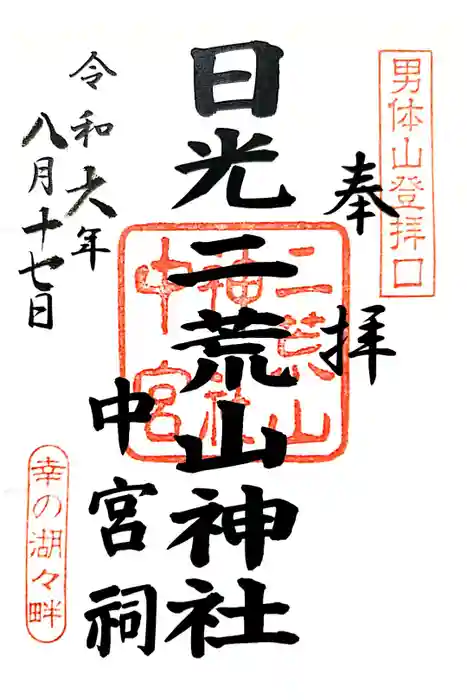 男体山登拝口
奉拝
日光二荒山神社
中宮祠
二荒山
神社
中宮
令和六年
八月十七日
幸の湖々畔